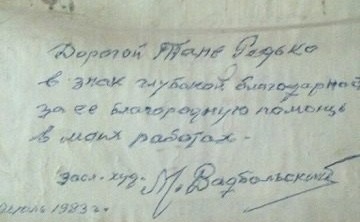 Дорогой Тане Редько
в знак глубокой благодарнос
за её благородную помощь
в моих работах.
засл. худ. М. Вадбольский
1983 г.